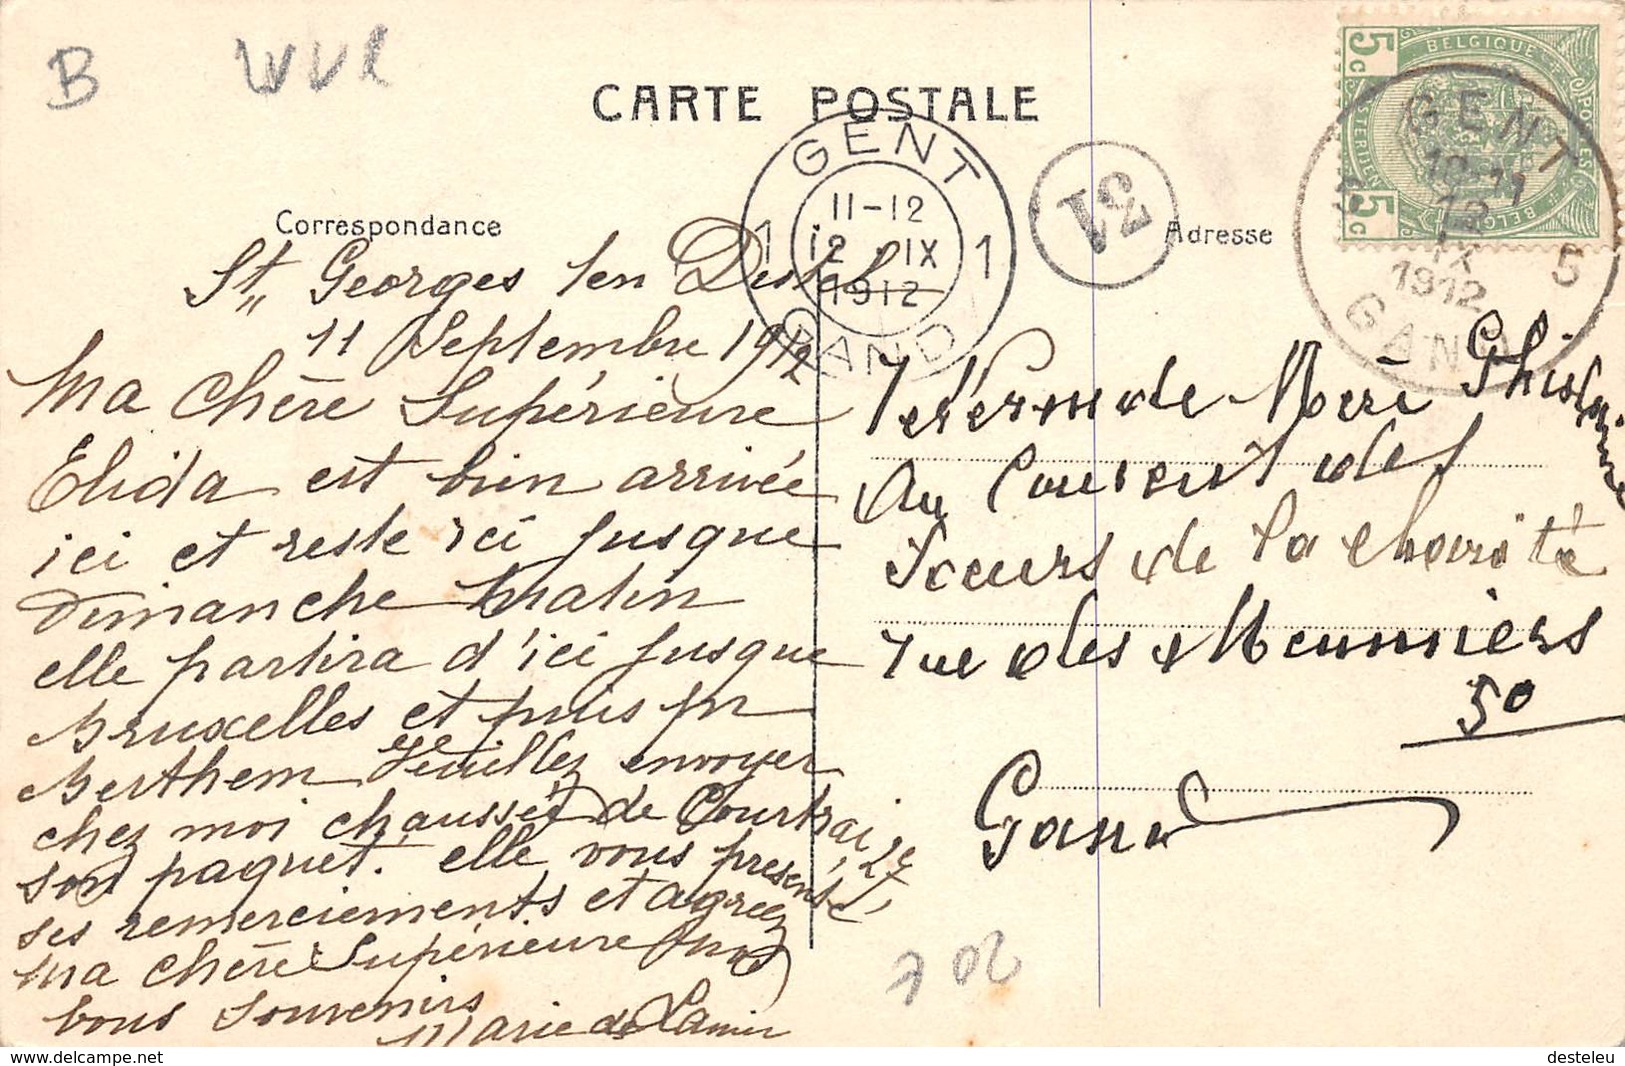 B
CARTE POSTALE
BELGIQUE
5c
5c
POSTES
BELGIË
GENT
11-12
12 IX
1912
GAND
1 1
31
GENT
10-11
12
IX
1912
5
GAND
Correspondance
Adresse
St Georges ten Distel
11 Septembre 1912
Ma chère Supérieure
Elida est bien arrivée
ici et reste ici jusque
dimanche matin
elle partira d'ici jusque
Bruxelles et puis pr
Berthem Veuillez envoyer
chez moi chaussée de Courtrai, 27
son paquet. elle vous présente,
ses remerciements et agréez
ma chère Supérieure mes
bons souvenirs
Marie de
Révérende Mère Ghislaine
Au Couvent des
Sœurs de la charité
rue des Meuniers
50
Gand
702
delcampe.net
desteleu